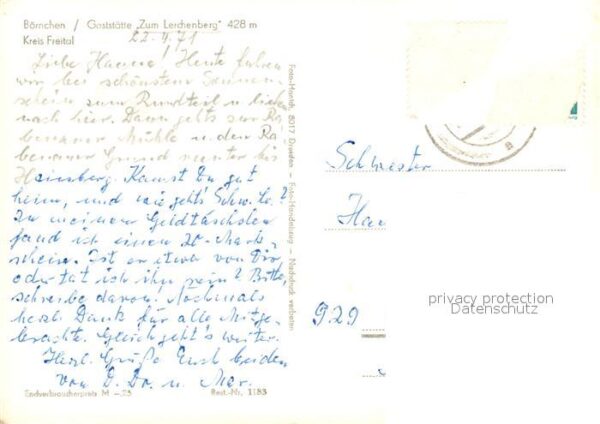 Börnchen / Gaststätte "Zum Lerchenberg" 428 m
Kreis Freital
22.4.71
Liebe Hanna! Heute fuhren
wir bei schönstem Sonnen
schein zum Rundteil u. liefen
nach hier. Dann gehts zur Ra
benauer Mühle u. den Ra
benauer Grund runter bis
Hainsberg. Kamst Du gut
heim, und wie geht's Schw.
In meinem Geldtäschchen
fand ich einen 20-Mark-
schein. Ist er etwa von Dir
oder tat ich ihn rein? Bitte
schreibe davon! Nochmals
herzl. Dank für alle Mitge-
brachte. Gleich geht's weiter.
Herzl. Grüße Euch beiden
von D. Do. u. Mar.
Endverbraucherpreis M -,25 Best.-Nr. 1183
8017 Dresden — Foto-Handabzug — Nachdruck verboten
Schwester
Han
929
privacy protection
Datenschutz